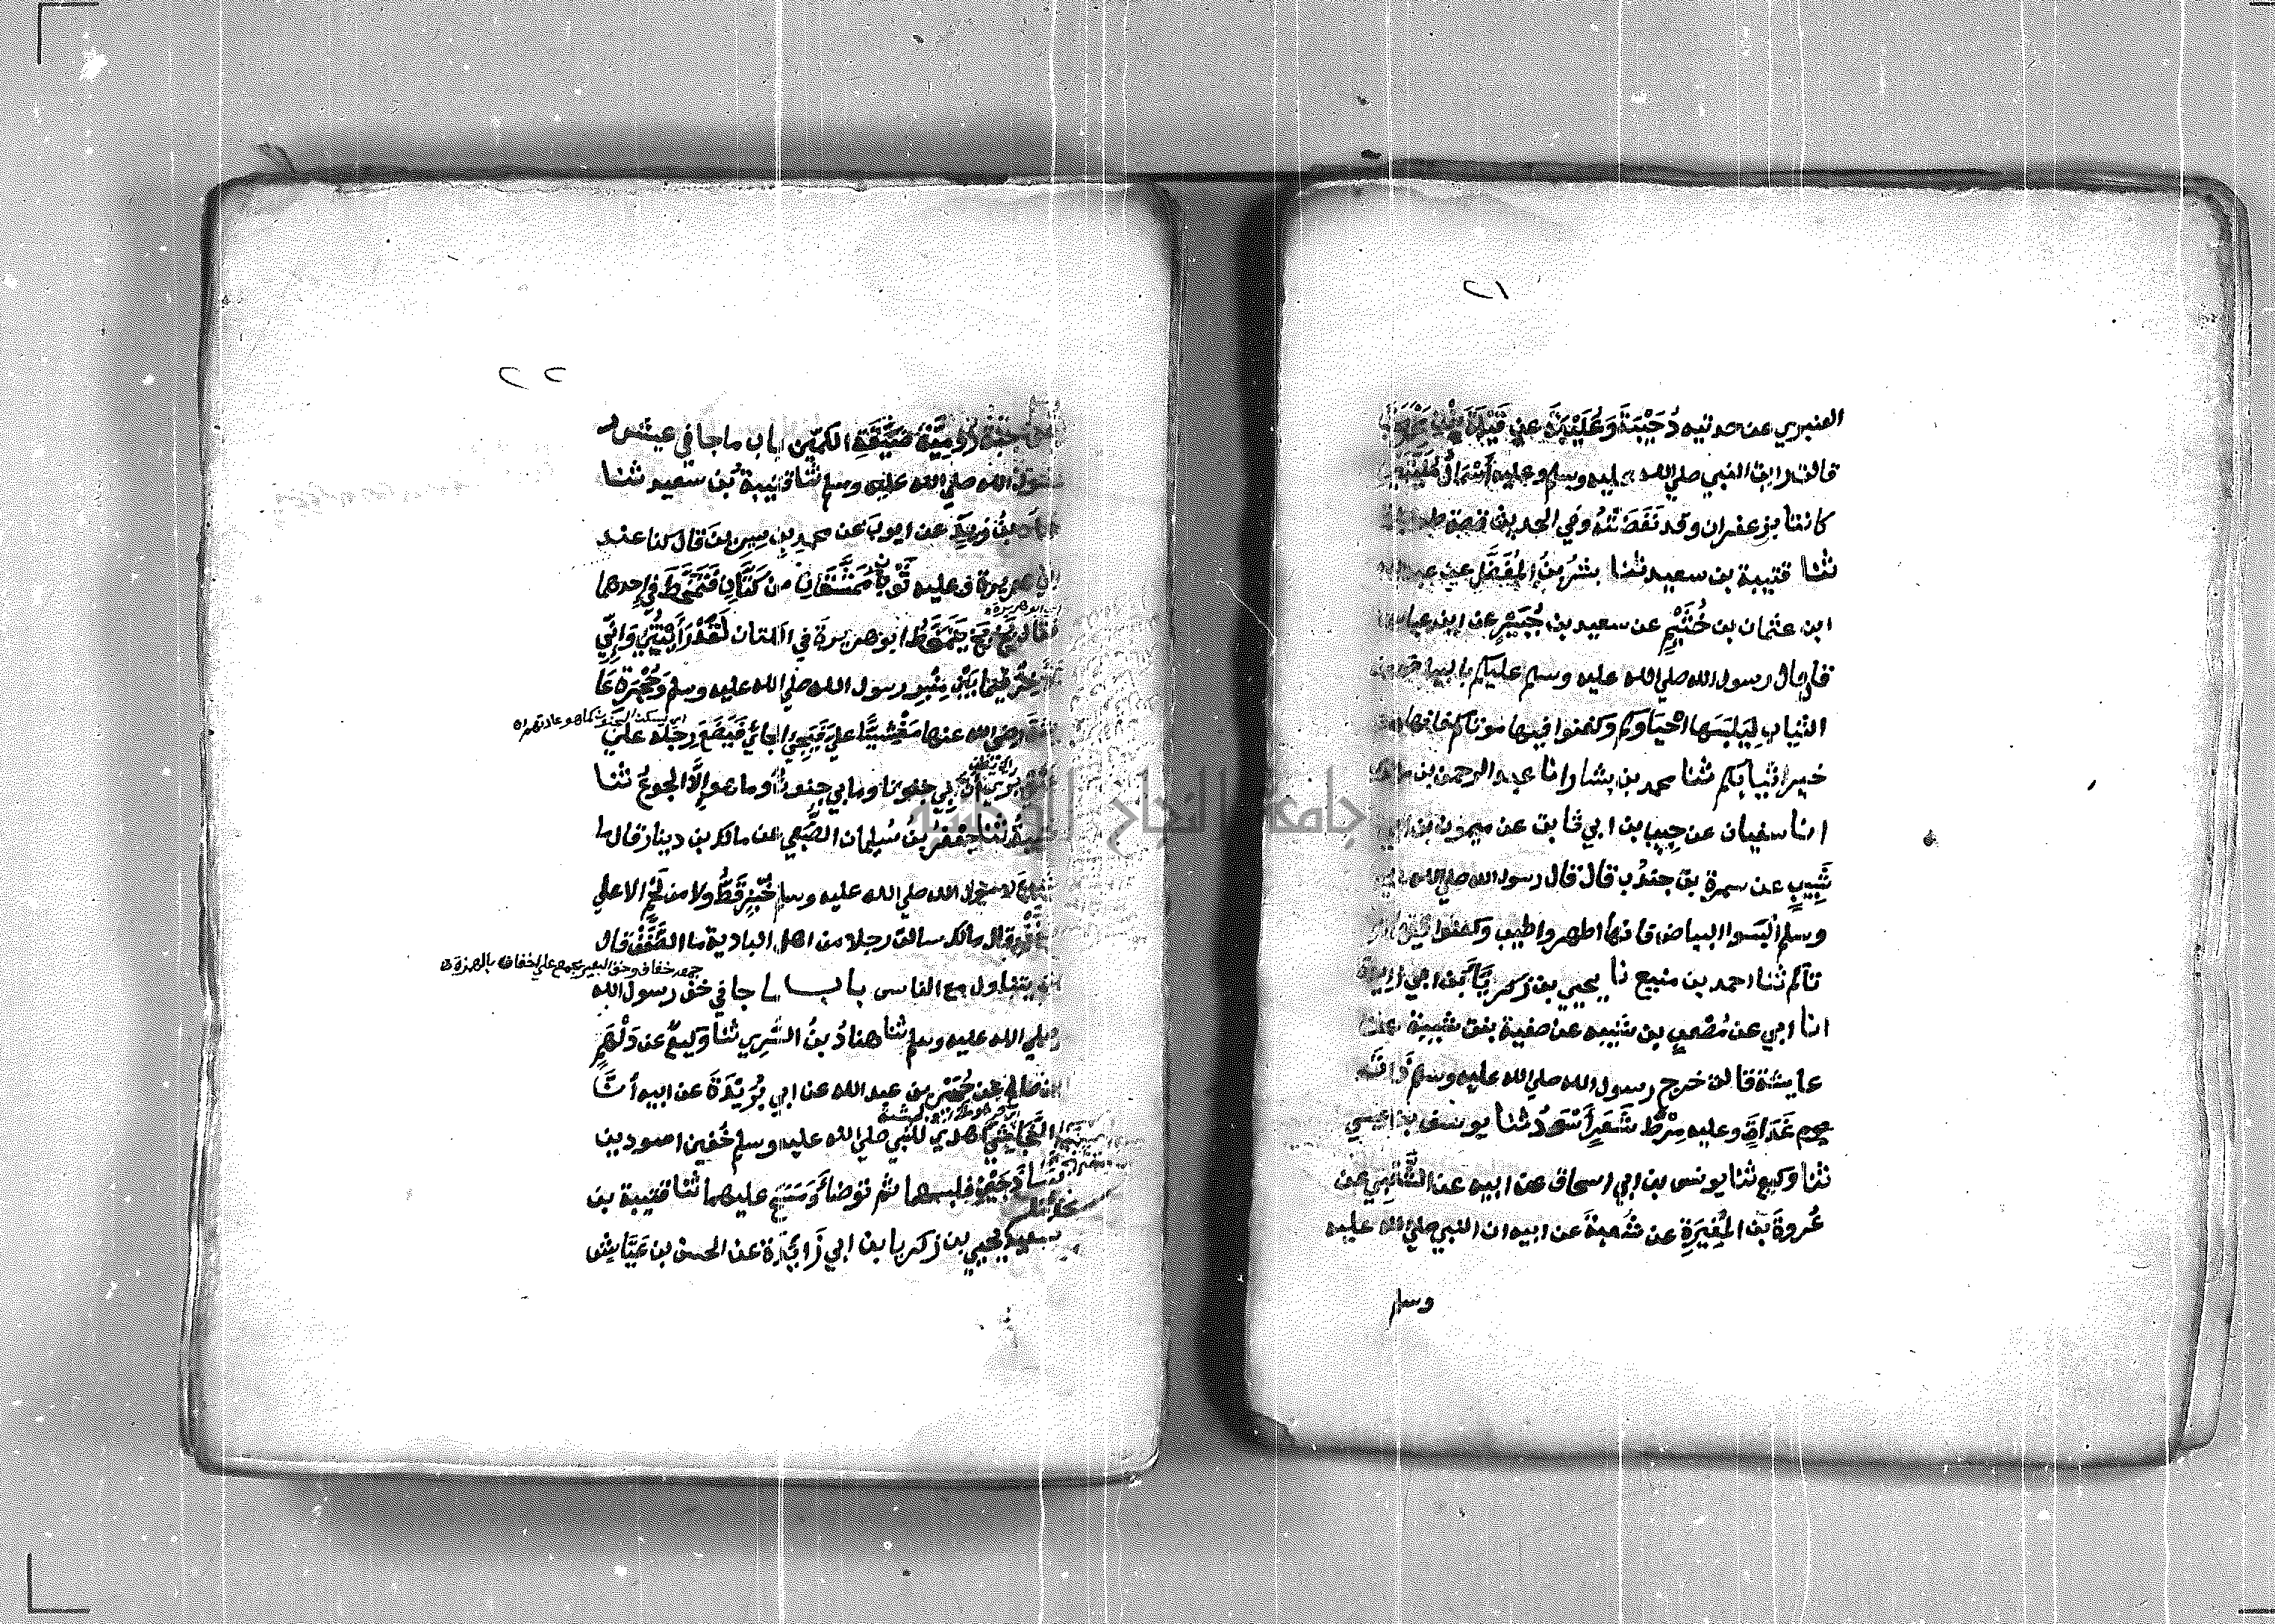 ٢١
العنبري عن جدتيه دُحَيْبَةَ وَعُلَيْبَةَ عن قَيْلَةَ بنت مخرمة
قالت رايت النبي صلي الله عليه وسلم وعليه أسمال مليتين
كانتا بزعفران وقد نَفَضَتْهُ وفي الحديث قصة طويلة
ثنا قتيبة بن سعيد ثنا بشرُ بنُ المُفَضَّلِ عن عبد الله
ابن عثمان بن خُثَيْمٍ عن سعيد بن جُبَيْرٍ عن ابن عباس
قال قال رسول الله صلي الله عليه وسلم عليكم بالبياض من
الثياب لِيَلْبَسَها احْيَاوكم وكفنوا فيها موتاكم فانها من
خير ثيابكم ثنا محمد بن بشار انا عبد الرحمن بن مهدي
انا سفيان عن حبيب بن ابي ثابت عن ميمون بن ابي
شَبِيبٍ عن سمرة بن جندُب قال قال رسول الله صلي الله عليه
وسلم البَسوا البياض فانها اطهر واطيب وكفنوا فيها
تاكم ثنا احمد بن منيع نا يحيي بن زكريَّا بن ابي زايدة
انا ابي عن مُصْعبِ بن شيبه عن صفية بنت شيبة عن
عايشة قالت خرج رسول الله صلي الله عليه وسلم ذَاتَ
يوم غَدَاةٍ وعليه مِرْطُ شَعَرٍ أَسْوَدُ ثنا يوسف بن عيسي
ثنا وكيع ثنا يونس بن ابي اسحاق عن ابيه عن الشَّعْبِي عن
عُروةَ بن المُغِيرَةِ بن شُعبةَ عن ابيه ان النبي صلي الله عليه
وسلم
٢٢
جبَّة رُومِيَّة ضَيَّقَةِ الكمّين باب ما جا في عيش
رسول الله صلي الله عليه وسلم ثنا قتيبة بن سعيد ثنا
حماد بن زيدٍ عن ايوبَ عن محمد بن سيرين قال كنا عند
ابي هريرة وعليه ثَوْبَانِ مُمَشَّقَانِ من كَتَّانٍ فَتَمَخَّطَ في احدهما
فقال بَخٍ بَخٍ يَتَمَخَّطُ ابو هريرةَ في الكتان لَقَدْ رَأَيْتُنِي وَإِنِّي
لَأَخِرُّ فيما بَيْنَ مِنْبرِ رسول الله صلي الله عليه وسلم وحُجْرَةِ عَا
يشةَ رضي الله عنها مَغْشِيًّا عليَّ فَيَجِئُ الجائي فَيَضَعُ رِجْلَهُ علي
عُنُقِي يري أنَّ بي جنونا وما بي جنونٌ وما هو إلَّا الجوعُ ثنا
قتيبةُ ثنا جَعْفرُ بنُ سُليمان الضُّبَعي عن مالك بن دينار قال ما
شبع رسول الله صلي الله عليه وسلم من خُبْزٍ قَطُّ ولا من لَحْمٍ الا علي
ضَفَفٍ قال مالك سالت رجلا من اهل البادية ما الضَّفَفُ قال
جمعه خفاف وخف البعير يجمع علي اخفاف بالهمزة
ان يتناول مع الناس باب ما جا في خف رسول الله
صلي الله عليه وسلم ثنا هنادُ بنُ السَّرِي ثنا وكيعٌ عن دَلْهَمِ
ابن صالح عن حُجَيْر بن عبد الله عن ابي بُرَيْدَةَ عن ابيه أنَّ
النَّجاشِيَّ اهدي للنبي صلي الله عليه وسلم خُفَّين اسودين
سَاذَجَيْنِ فلبسهما ثم توضأ وَمَسَحَ عليهما ثنا قتيبة بن
سعيد يحيي بن زكريا بن ابي زَائِدَة عن الحسن بن عَيَّاش
جامعة النجاح الوطنية